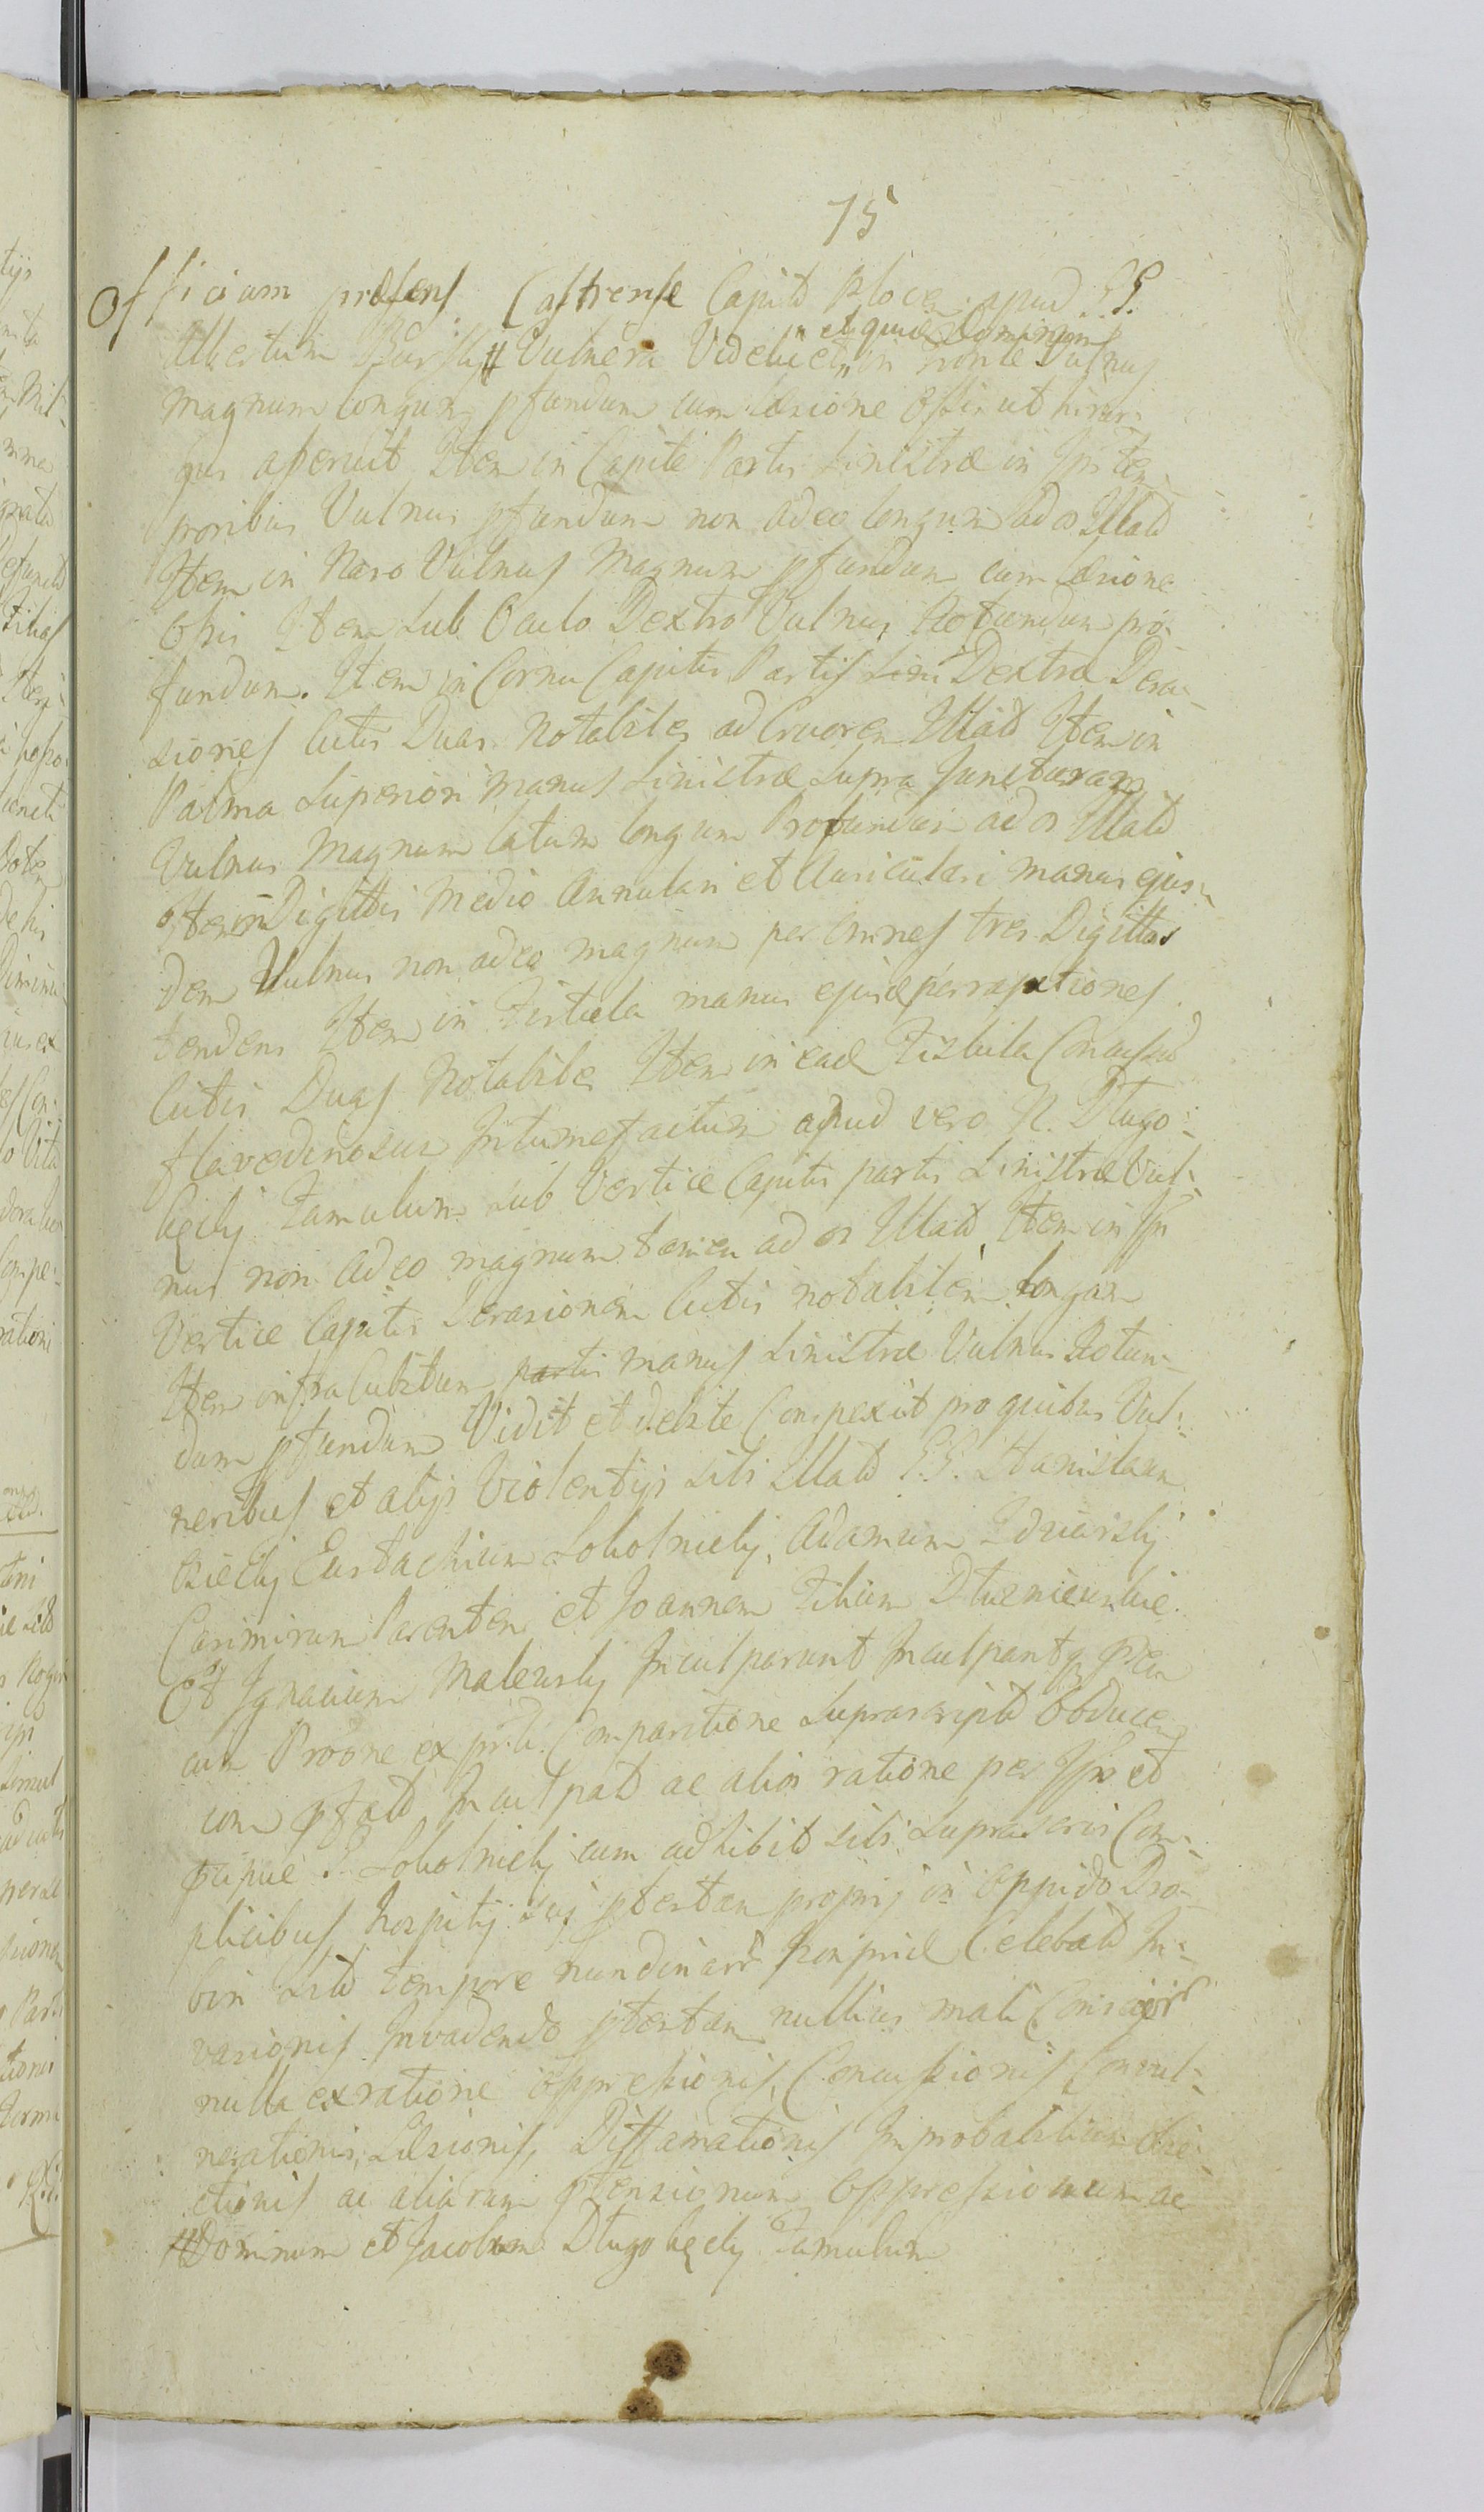 75
Officium præsens Castrense Capitd Plocen apud GG.
Albertum Bar # Vulnera Videlicet "in fronte Vulnus
" et quidē Dominum
magnum longum pfundum cum læsione Ossis ut hirur:
gus asseruit Item in Capite Partis sinistræ in Ips tem:
poribus Vulnus pfundum non adeo longum ad os Illatd
Item in Naso Vulnus magnum pfundum cum læsione
Ossis Item sub Oculo Dextro Vulnus Rotundum pro:
fundum. Item in Cornu Capitis Partis Dextræ Dera:
siones Cutis Duas Notabiles ad Cruorem Illatd Item in
Palma superiori manus sinistræ supra Juncturam
Vulnus magnum latum longum Profundum ad os Illatd
Item in Digittis Medio Annulari et Auriculari manus ejus:
dem Vulnus non adeo magnum per omnes tres Digittos
tendens Item in Fistula manus ejusd
Cutis Duas Notabiles Item in ead Fistula Concussd
flavedinosum Intumefactum apud vero N. Dlugo:
łęcki Famulum sub Vertice Capitis partis sinistræ Vul:
nus non adeo magnum tamen ad os Illatd Item in Ips
Vertice Capitis Derasionem Cutis notabilem longam
Item infra Cubitum partis manus sinistræ Vulnus Rotun:
dum pfundum Vidit et debite Conspexit pro quibus Vul:
neribus et alijs Violentijs sibi Illatd G.G. Stanislaum
Eustachium Sokolnicki, Adamum Zdziarski
Casimirum Parentem et Joannem Filium Dłużniewskie
Et Ignacium Malewski Inculparunt Inculpantq
cum Prōōne ex Comparitione suprascriptd Obducen
cum Inculpatd ac alios ratione per Ipsos et
G. Sokolnicki cum adhibitd sibi suprascris Com:
plicibus hospitij sui ptestan proprij in Oppido Dro:
bin sitd tempore nundinarū Celebratd In:
vasionis Invadendo ptestan nullius mali Consciorū
nulla ex ratione Oppressionis, Concussionis Convul:
nerationis, Læsionis, Diffamationis Improbabilium
ctionis ac aliarum ptensionum Oppressionum ac
# Dominum et Jacobum Dlugołęcki Famulum